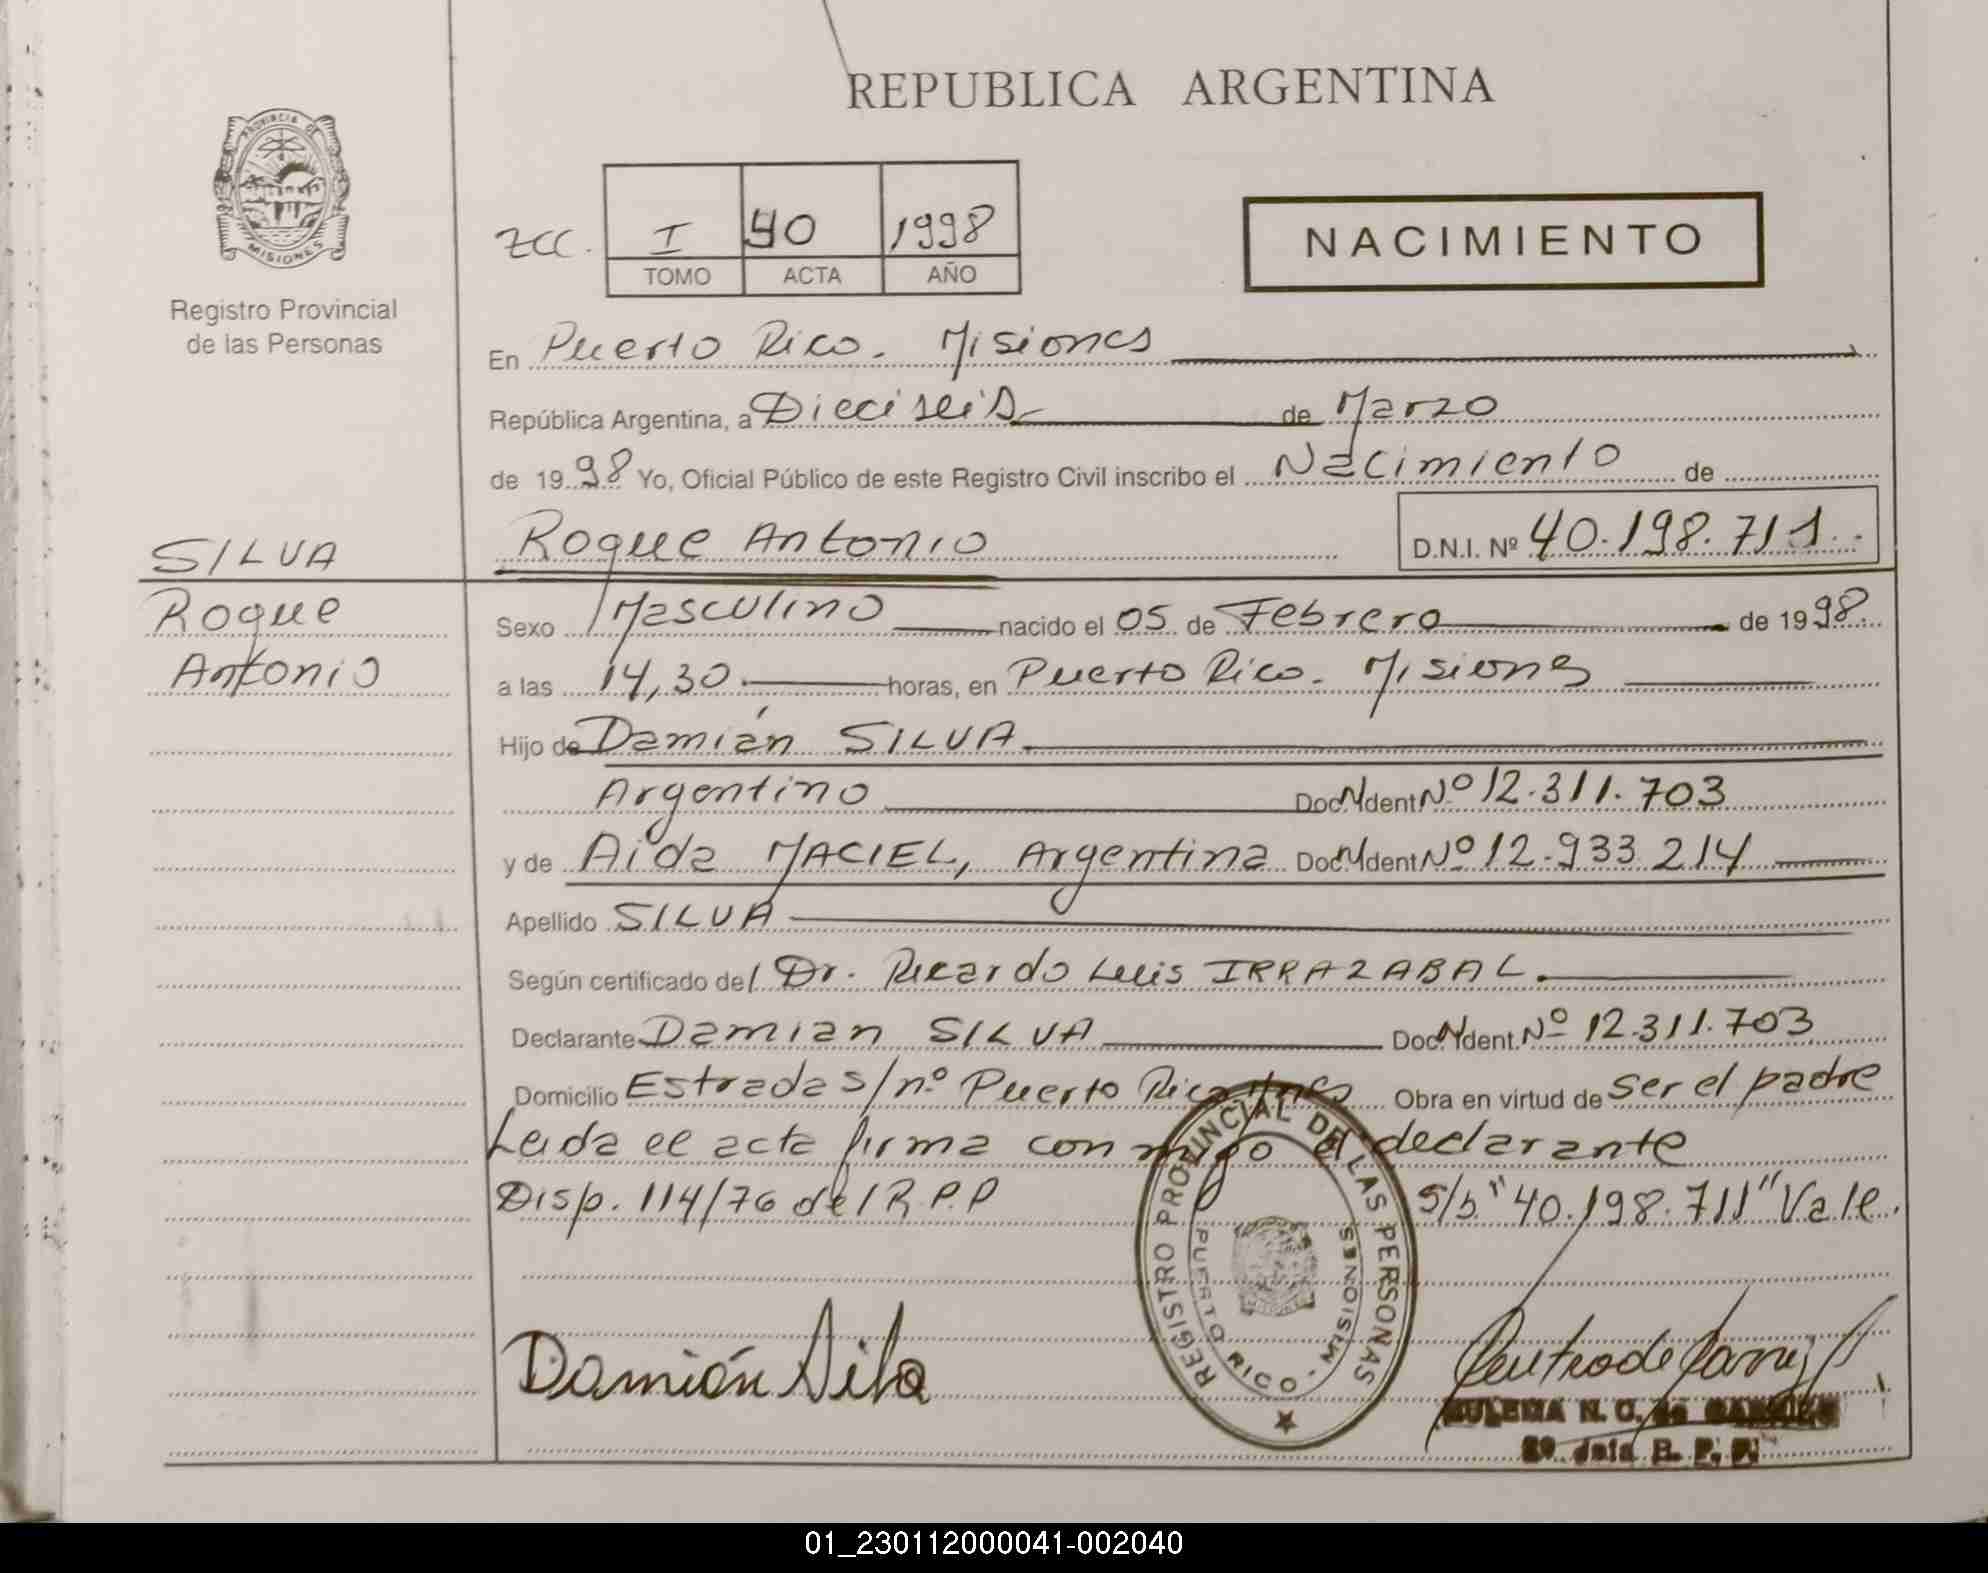 REPUBLICA ARGENTINA
PROVINCIA DE
MISIONES
Registro Provincial
de las Personas
zcc. I 90 1998
TOMO ACTA AÑO
NACIMIENTO
En Puerto Rico. Misiones
República Argentina, a Dieciseis de Marzo
de 1998 Yo, Oficial Público de este Registro Civil inscribo el Nacimiento de
Roque Antonio D.N.I. Nº 40.198.711
SILVA
Roque
Antonio
Sexo Masculino nacido el 05 de Febrero de 1998
a las 14,30 horas, en Puerto Rico. Misiones
Hijo de Damián SILVA
Argentino Doc. Ident Nº 12.311.703
y de Aida MACIEL, Argentina Doc. Ident Nº 12.933.214
Apellido SILVA
Según certificado del Dr. Ricardo Luis IRRAZABAL.
Declarante Damian SILVA Doc. Ident. Nº 12.311.703
Domicilio Estrada s/nº Puerto Rico Mnes Obra en virtud de ser el padre
Leida el acta firma con migo el declarante
Disp. 114/76 del R.P.P s/b "40.198.711" Vale.
REGISTRO PROVINCIAL DE LAS PERSONAS
PUERTO RICO - MISIONES
Damián Silva
ZULEMA N. C. de
R. P. P.
01_230112000041-002040